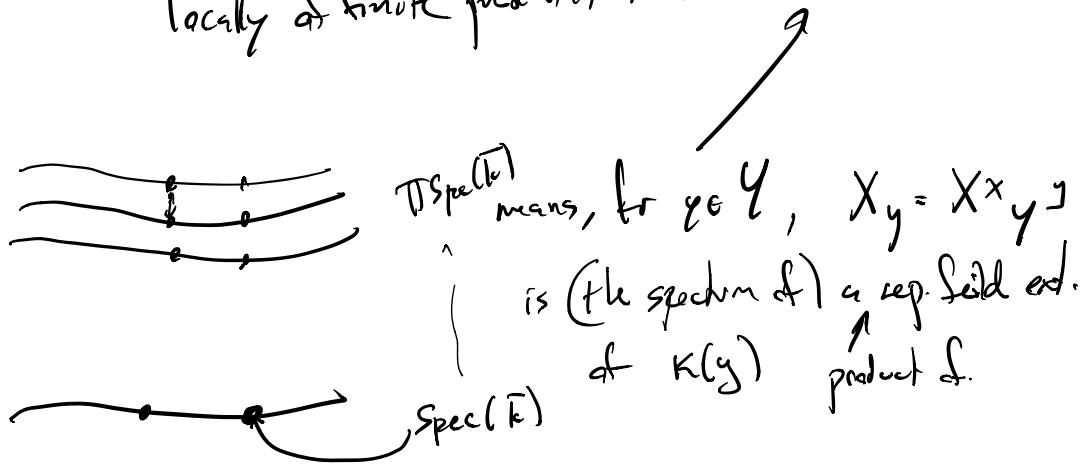 locally of finite
∐Spec(k̄) means, for y ∈ Y, X_y = X ×_Y y
is (the spectrum of) a sep. feild ext.
of κ(y) product of.
Spec(k̄)